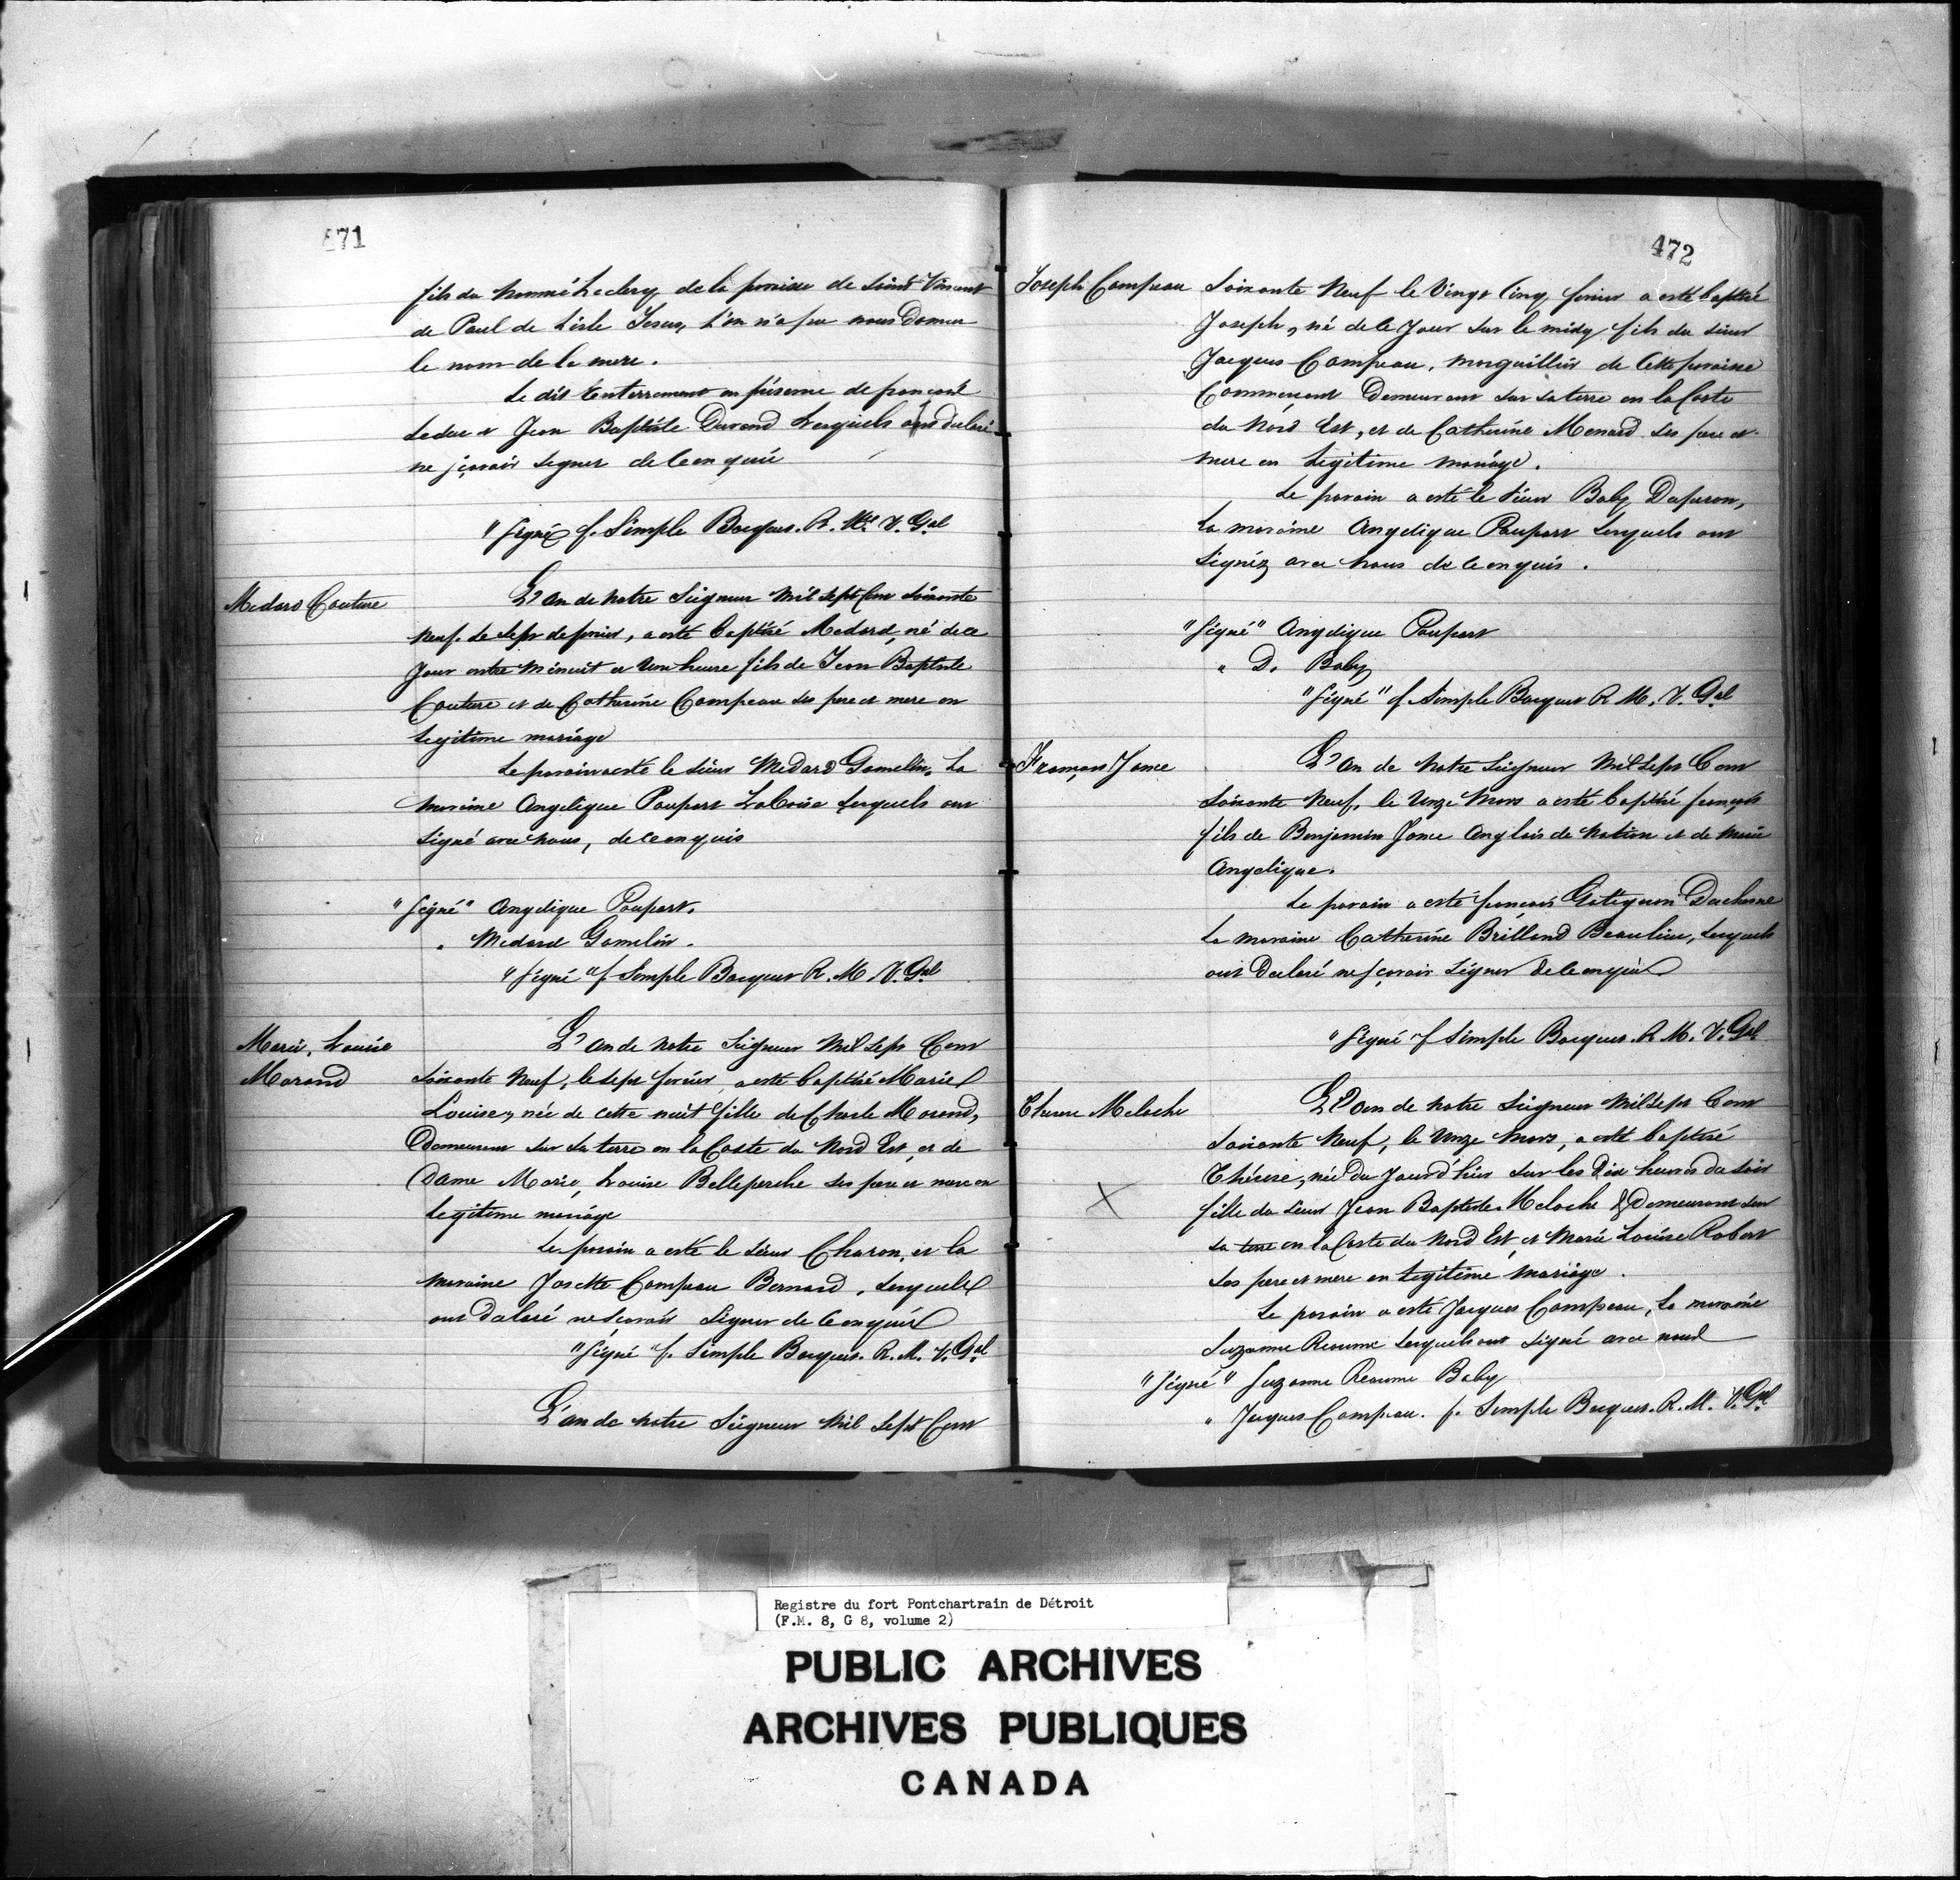 671
fils du nommé Leclerq de la paroisse de Saint Vincent
de Paul de L'isle Jesus, L'on n'a pu nous Donner
le nom de la mere.
Le dit Enterrement en présence de françois
Leduc et Jean Baptiste Durand Lesquels ont declaré
ne sçavoir signer de ce enquis
"Signé f. Simple Bocquet. R. Mre V. Gal
Medard Couture
L'an de notre Seigneur mil sept Cent Soixante
neuf. Le Sept de fevrier, a esté baptisé Medard, né de ce
Jour entre Minuit et Une heure fils de Jean Baptiste
Couture et de Catherine Campeau ses pere et mere en
Legitime mariage
Le parain a esté le Sieur Medard Gamelin, La
maraine Angelique Poupart Laboise Lesquels ont
signé avec nous, de ce enquis
"Signé" Angelique Poupart.
" Medard Gamelin.
"Signé" f Simple Bocquet R. M. V. Gal
Marie, Louise
Morand
L'an de notre Seigneur Mil Sept Cent
Soixante Neuf, le sept fevrier, a esté baptisé Marie
Louise, née de cette nuit fille de Charle Morand,
Demeurant sur sa terre en la Coste du Nord Est, et de
Dame Marie, Louise Belleperche ses pere et mere en
Legitime mariage
Le parain a esté le Sieur Charon, et la
maraine Josette Campeau Bernard, Lesquels
ont Declaré ne scavoir Signer de ce enquis
"Signé f. Simple Bocquet. R. M. V. Gal
L'an de notre Seigneur Mil Sept Cent
472
Joseph Campeau
Soixante Neuf le Vingt Cinq fevrier a esté baptisé
Joseph, né de ce Jour sur le midy fils du sieur
Jacques Campeau, marguillier de Cette paroisse
Commencent Demeurant sur sa terre en la Coste
du Nord Est, et de Catherine Menard ses pere et
mere en Legitime mariage.
Le parain a esté le Sieur Baby Duperon,
La maraine Angelique Poupart Lesquels ont
Signéz avec nous de ce enquis.
"Signé" Angelique Poupart
" D. Baby
"Signé" f Simple Bocquet R M. V. Gal
François Jonce
L'an de notre Seigneur Mil Sept Cent
Soixante Neuf, le Unze Mars a esté baptisé françois
fils de Benjamin Jonce Anglais de Nation et de Marie
Angelique.
Le parain a esté francois Gatignon Duchesne
La maraine Catherine Brilland Beaulieu, Lesquels
ont Declaré ne sçavoir Signer de ce enquis
"Signé f Simple Bocquet. R M. V. Gal
Therese Meloche
L'an de notre Seigneur Mil Sept Cent
Soixante Neuf, le Unze Mars, a esté baptisé
Thérese, née du Jourd'hier sur les Dix heures du Soir
fille du Sieur Jean Baptiste Meloche & Demeurant sur
sa terre en la Coste du Nord Est, et Marie Louise Robert
Ses pere et mere en Legitime Mariage.
Le parain a esté Jacques Campeau, La maraine
Suzanne Reaume Lesquels ont Signé avec nous
"Signé" Suzanne Reaume Baby
" Jacques Campeau. f. Simple Bocquet. R. M. V. Gal
Registre du fort Pontchartrain de Détroit
(F.M. 8, G 8, volume 2)
PUBLIC ARCHIVES
ARCHIVES PUBLIQUES
CANADA